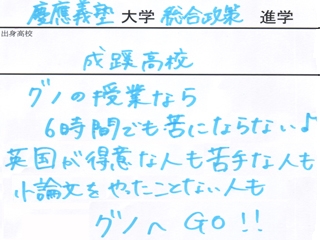 慶應義塾 大学 総合政策 進学
出身高校
成蹊高校
グノの授業なら
6時間でも苦にならない♪
英国が得意な人も苦手な人も
小論文をやったことない人も
グノへ GO!!